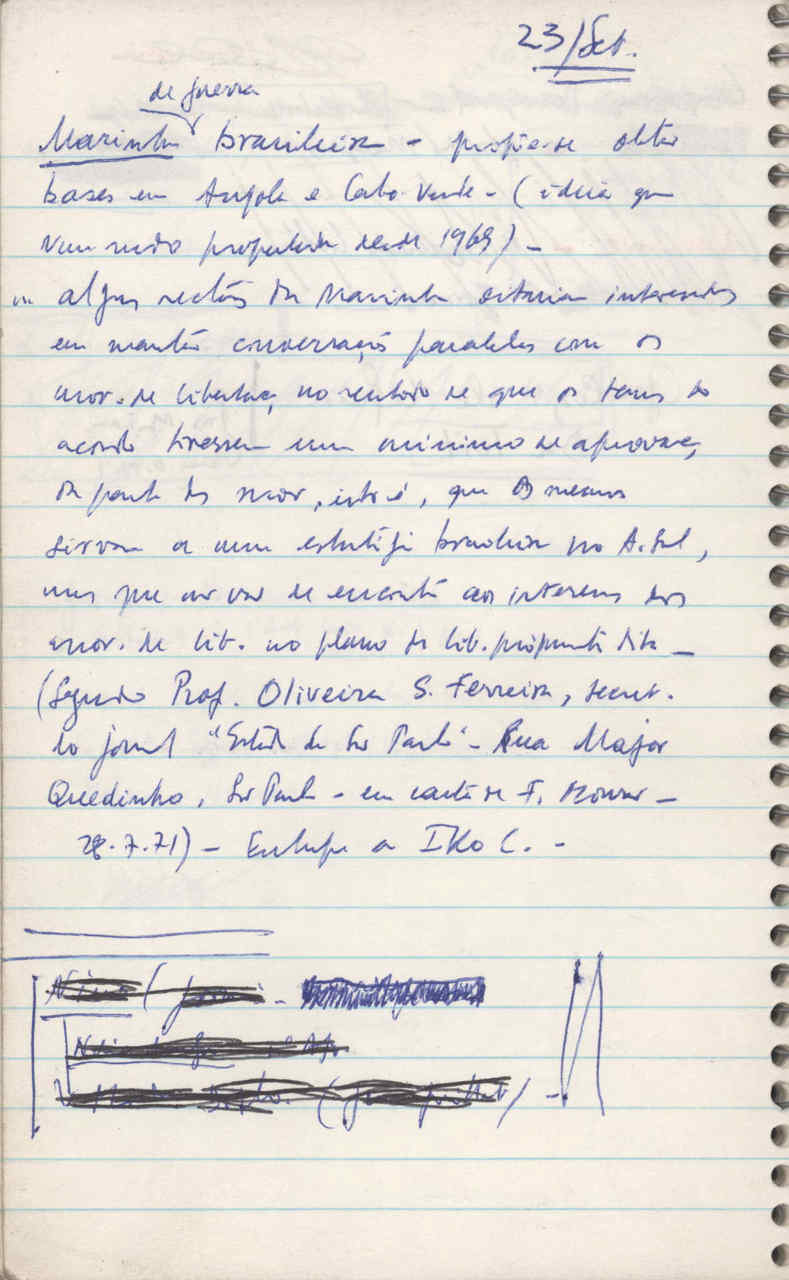 23/Set.
de guerra
Marinha brasileira - propõe-se obter
bases em Angola e Cabo-Verde - (ideia que
vem sendo propalada desde 1969) -
algus sectões da Marinha estariam interessados
em manter conversações paralelas com os
mov. de libertação, no sentido de que os termos do
acordo tivessem um mínimo de aprovação
da parte dos mov, isto é, que os mesmos
sirvam a uma estratégia brasileira no A. Sul,
mas que não vá de encontro aos interesses dos
mov. de lib. no plano da lib. propriamente dita -
(Segundo Prof. Oliveira S. Ferreira, secret.
do jornal "Estado de São Paulo" - Rua Major
Quedinho, São Paulo - em carta de F.
28.7.71) - a IKO C. -